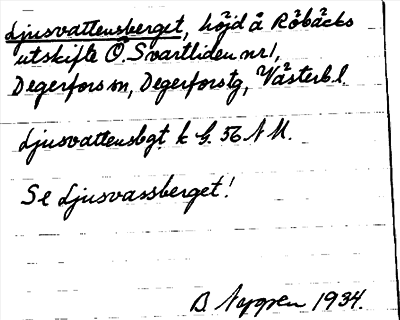 Ljusvattensberget, höjd å Röbäcks
utskifte Ö. Svartliden nr 1,
Degerfors sn, Degerforstg, Västerb.l.
Ljusvattensbgt k G. 56 NM.
Se Ljusvassberget!
B. Nygren 1934.